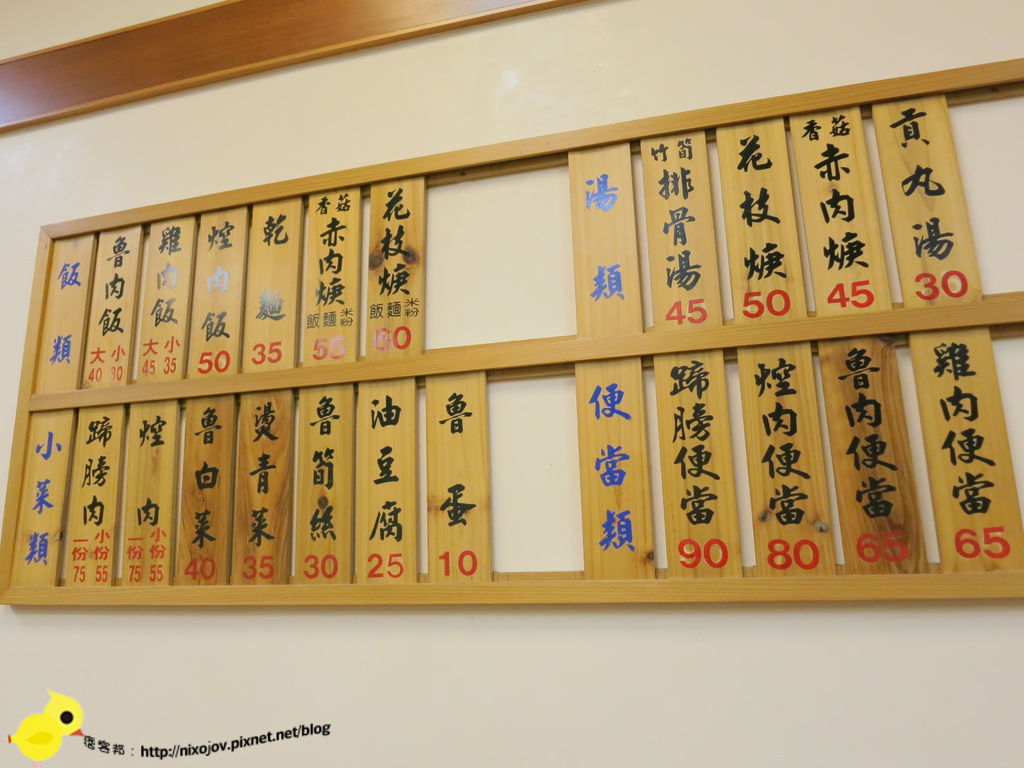 飯類
魯肉飯 大40 小30
雞肉飯 大45 小35
焢肉飯 50
乾麵 35
香菇赤肉焿 飯麵米粉 55
花枝焿 飯麵米粉 60
湯類
竹筍排骨湯 45
花枝焿 50
香菇赤肉焿 45
貢丸湯 30
小菜類
蹄膀肉 一份75 小份55
焢肉 一份75 小份55
魯白菜 40
燙青菜 35
魯筍絲 30
油豆腐 25
魯蛋 10
便當類
蹄膀便當 90
焢肉便當 80
魯肉便當 65
雞肉便當 65
痞客邦：http://nixojov.pixnet.net/blog